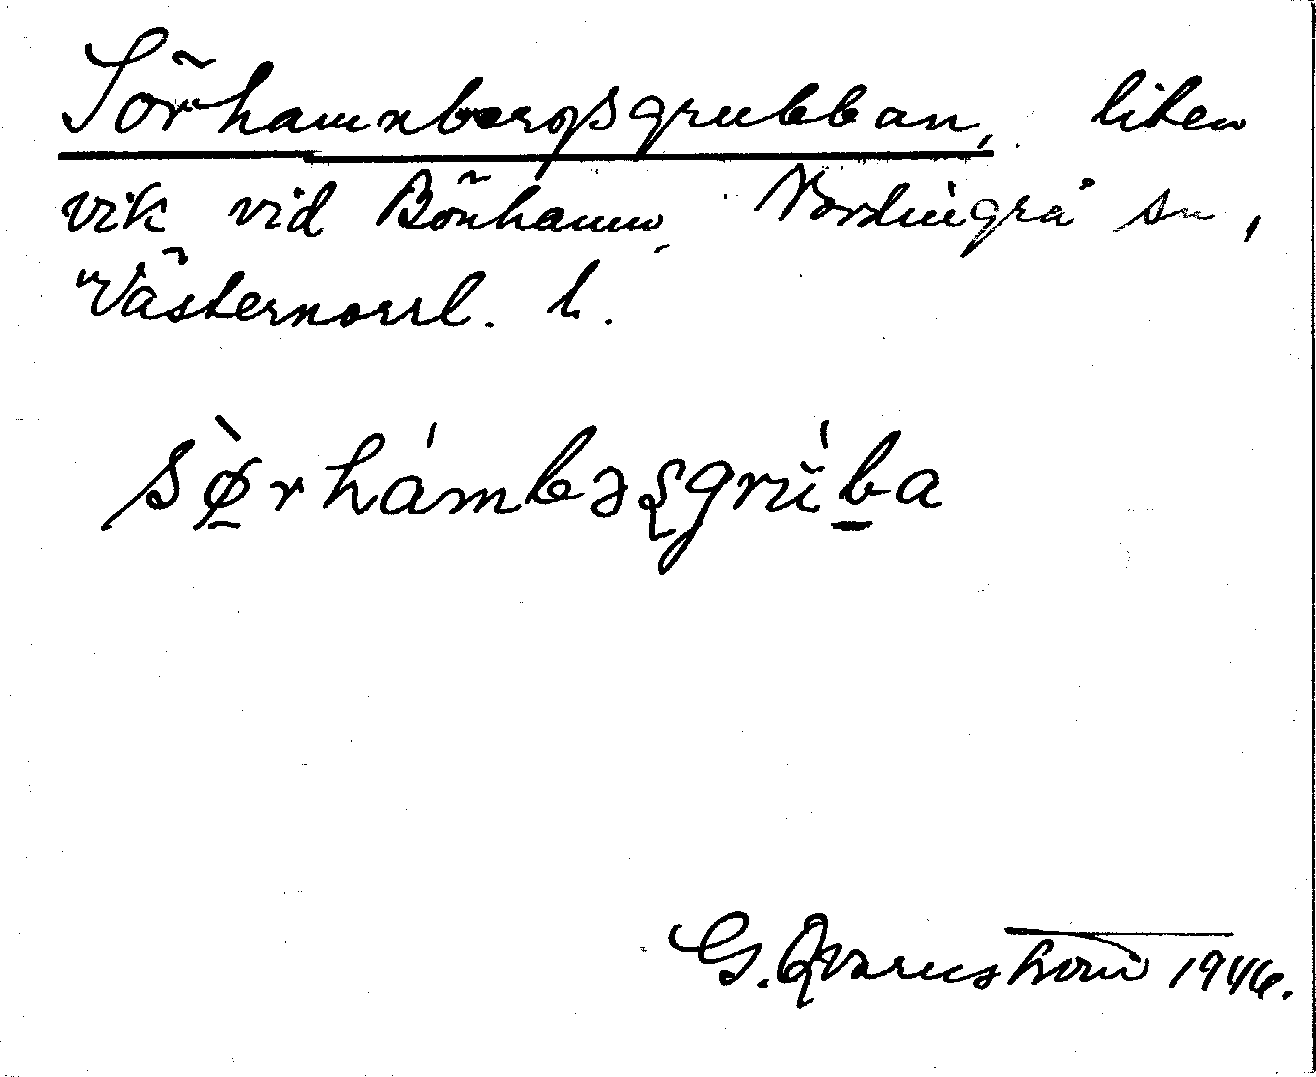 Sörhamnbergsgrubban, liten
vik vid Bönhamn, Nordingrå sn,
Västernorrl. l.
sø̀rhámbəsgrúba
G. Qvarnström 1946.